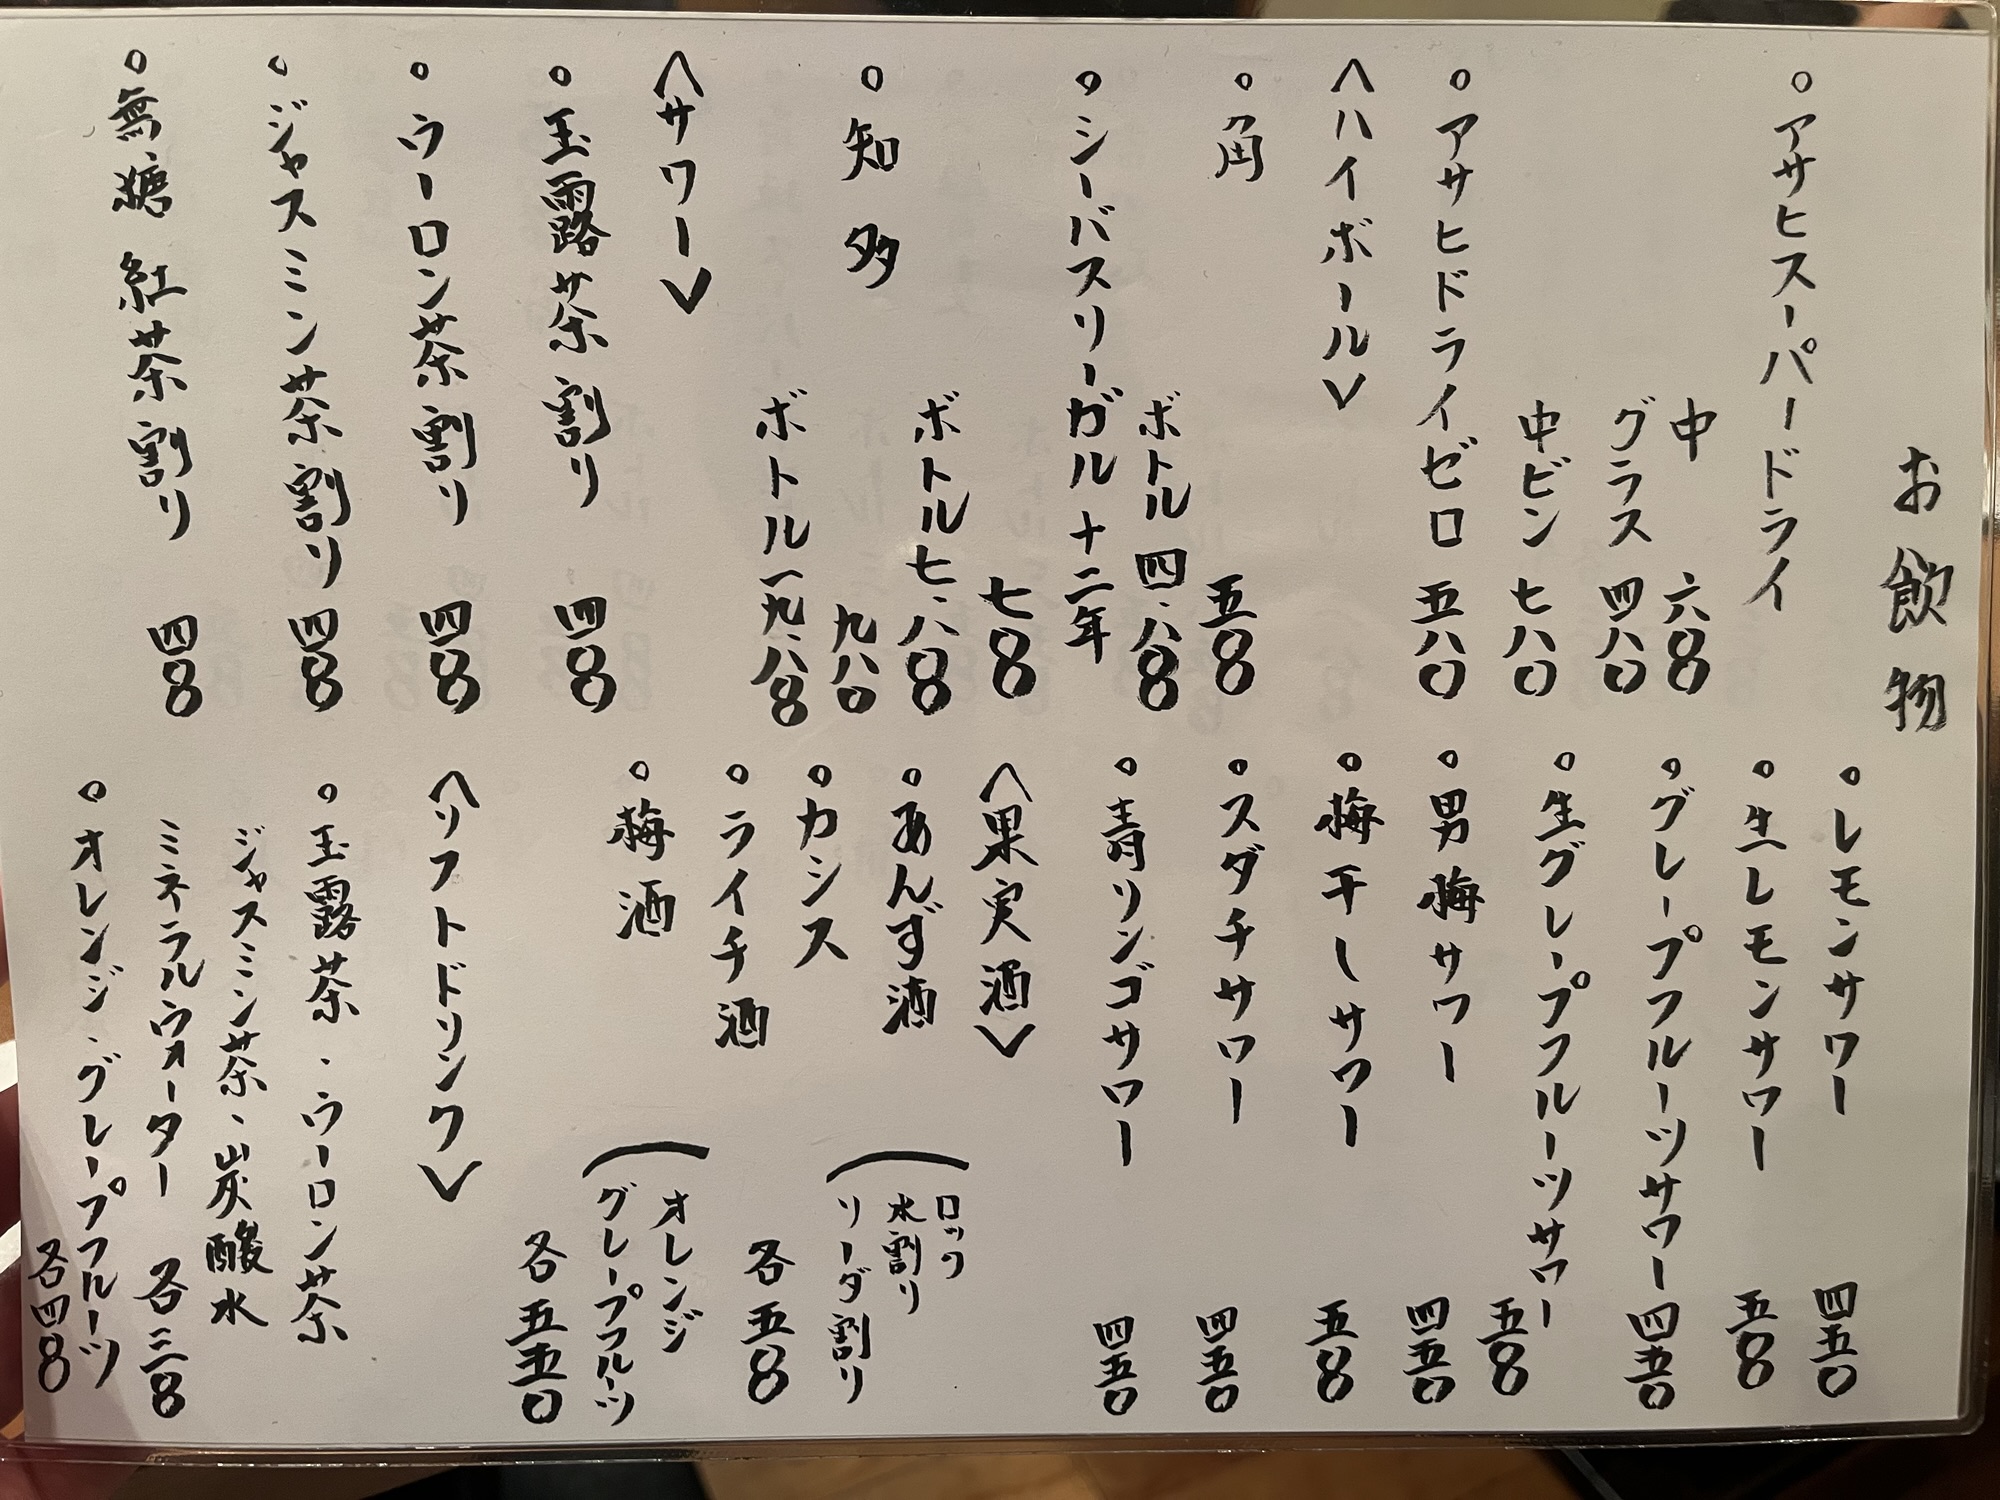 お飲物
。アサヒスーパードライ
中 六〇〇
グラス 四八〇
中ビン 七八〇
。アサヒドライゼロ 五八〇
〈ハイボール〉
。角 五〇〇
ボトル 四、八〇〇
。シーバスリーガル十二年
七〇〇
ボトル 七、八〇〇
。知多 九八〇
ボトル 一九、八〇〇
〈サワー〉
。玉露茶割り 四〇〇
。ウーロン茶割り 四〇〇
。ジャスミン茶割り 四〇〇
。無糖 紅茶割り 四〇〇
。レモンサワー 四五〇
。生レモンサワー 五〇〇
。グレープフルーツサワー 四五〇
。生グレープフルーツサワー 五〇〇
。男梅サワー 四五〇
。梅干しサワー 五〇〇
。スダチサワー 四五〇
。青リンゴサワー 四五〇
〈果実酒〉
。あんず酒
。カシス
。ライチ酒
。梅酒
ロック
水割り
ソーダ割り
各 五〇〇
オレンジ
グレープフルーツ
各 五五〇
〈ソフトドリンク〉
。玉露茶、ウーロン茶
ジャスミン茶、炭酸水
ミネラルウォーター 各 三〇〇
。オレンジ、グレープフルーツ
各 四〇〇